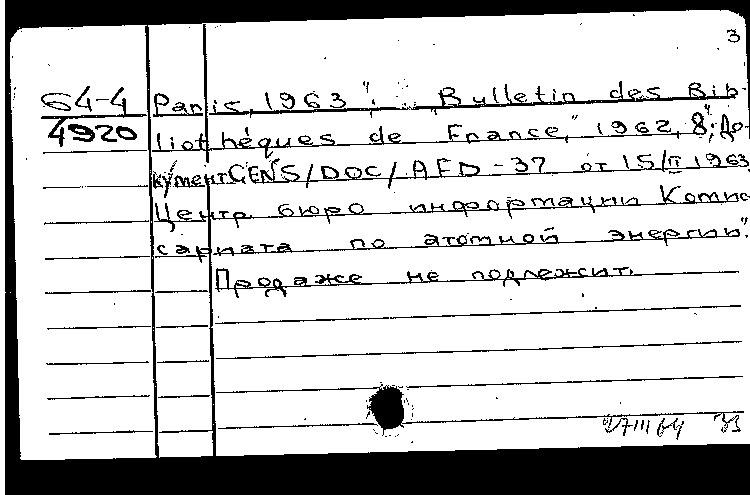 3
64-4
4920
Paris, 1963"; „Bulletin des Bib-
liothéques de France," 1962, 8"; До-
кумент CENS/DOC/AED-37 от 15/II 1963
Центр. бюро информации Комис
сариата по атомной энергии".
Продаже не подлежит.
27 III 64